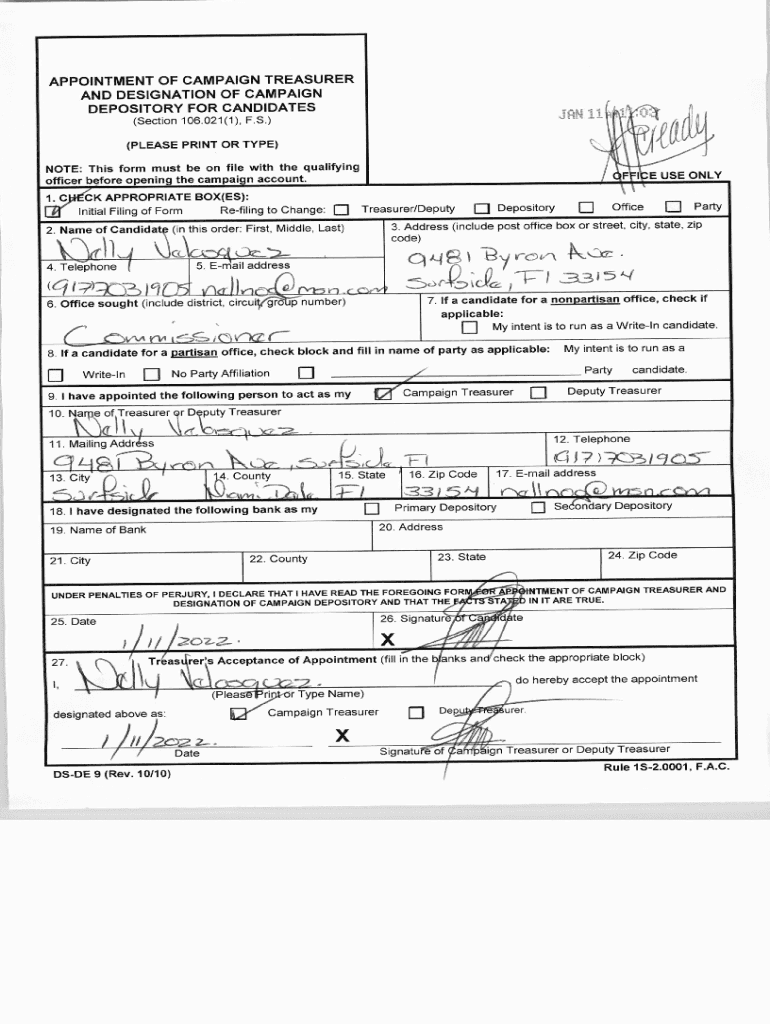 APPOINTMENT OF CAMPAIGN TREASURER
AND DESIGNATION OF CAMPAIGN
DEPOSITORY FOR CANDIDATES
(Section 106.021(1), F.S.)
(PLEASE PRINT OR TYPE)
NOTE: This form must be on file with the qualifying
officer before opening the campaign account.
JAN 11
McCready
OFFICE USE ONLY
1. CHECK APPROPRIATE BOX(ES):
Initial Filing of Form Re-filing to Change: Treasurer/Deputy Depository Office Party
2. Name of Candidate (in this order: First, Middle, Last)
Nelly Velasquez
3. Address (include post office box or street, city, state, zip
code)
9481 Byron Ave.
Surfside, Fl 33154
4. Telephone
(917)7031905
5. E-mail address
nellnod@msn.com
6. Office sought (include district, circuit, group number)
Commissioner
7. If a candidate for a nonpartisan office, check if
applicable:
My intent is to run as a Write-In candidate.
8. If a candidate for a partisan office, check block and fill in name of party as applicable: My intent is to run as a
Write-In No Party Affiliation Party candidate.
9. I have appointed the following person to act as my Campaign Treasurer Deputy Treasurer
10. Name of Treasurer or Deputy Treasurer
Nelly Velasquez.
11. Mailing Address
9481 Byron Ave, Surfside Fl
12. Telephone
(917)7031905
13. City
Surfside
14. County
Miami Dade
15. State
Fl
16. Zip Code
33154
17. E-mail address
nellnod@msn.com
18. I have designated the following bank as my Primary Depository Secondary Depository
19. Name of Bank
20. Address
21. City
22. County
23. State
24. Zip Code
UNDER PENALTIES OF PERJURY, I DECLARE THAT I HAVE READ THE FOREGOING FORM FOR APPOINTMENT OF CAMPAIGN TREASURER AND
DESIGNATION OF CAMPAIGN DEPOSITORY AND THAT THE FACTS STATED IN IT ARE TRUE.
25. Date
1/11/2022.
26. Signature of Candidate
X
27. Treasurer's Acceptance of Appointment (fill in the blanks and check the appropriate block)
I, Nelly Velasquez. do hereby accept the appointment
(Please Print or Type Name)
designated above as: Campaign Treasurer Deputy Treasurer.
1/11/2022. X
Date Signature of Campaign Treasurer or Deputy Treasurer
DS-DE 9 (Rev. 10/10) Rule 1S-2.0001, F.A.C.